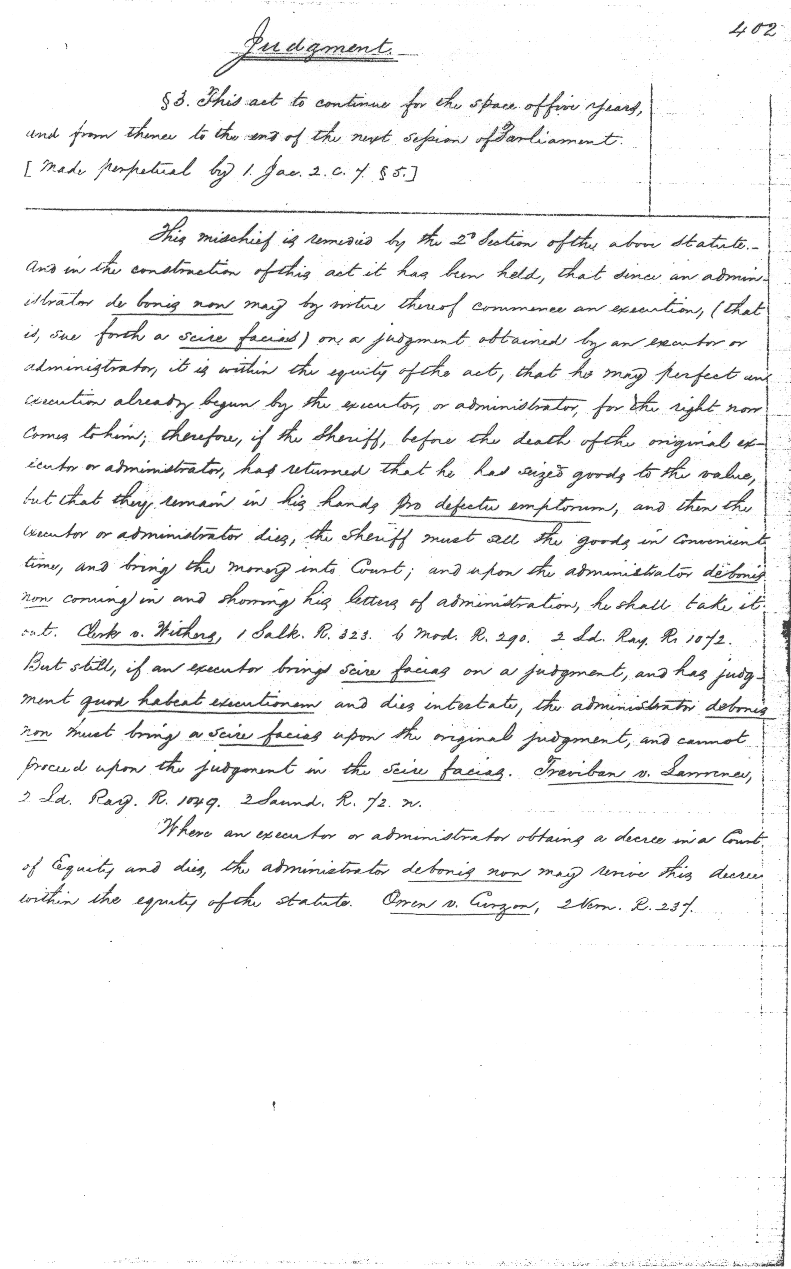 402
Judgment.
§3. This act to continue for the space of five years,
and from thence to the end of the next session of Parliament.
[Made perpetual by 1. Jac. 2. c. 7. §5.]
This mischief is remedied by the 2d Section of the above statute.-
And in the construction of this act it has been held, that since an admin-
istrator de bonis non may by virtue thereof commence an execution, (that
is, sue forth a scire facias) on a judgment obtained by an executor or
administrator, it is within the equity of the act, that he may perfect an
execution already begun by the executor, or administrator, for the right now
comes to him; therefore, if the Sheriff, before the death of the original ex-
ecutor or administrator, has returned that he has seized goods to the value,
but that they remain in his hands pro defectu emptorum, and then the
executor or administrator dies, the sheriff must sell the goods in convenient
time, and bring the money into Court; and upon the administrator de bonis
non coming in and showing his letters of administration, he shall take it
out. Clerk v. Withers, 1 Salk. R. 323. 6 Mod. R. 290. 2 Ld. Ray. R. 1072.
But still, if an executor brings scire facias on a judgment, and has judg-
ment quod habeat executionem and dies intestate, the administrator de bonis
non must bring a scire facias upon the original judgment, and cannot
proceed upon the judgment in the scire facias. Treviban v. Lawrence,
2 Ld. Ray. R. 1049. 2 Saund. R. 72. n.
Where an executor or administrator obtains a decree in a Court
of Equity and dies, the administrator de bonis non may revive this decree
within the equity of the statute. Owen v. Curzon, 2 Vern. R. 237.